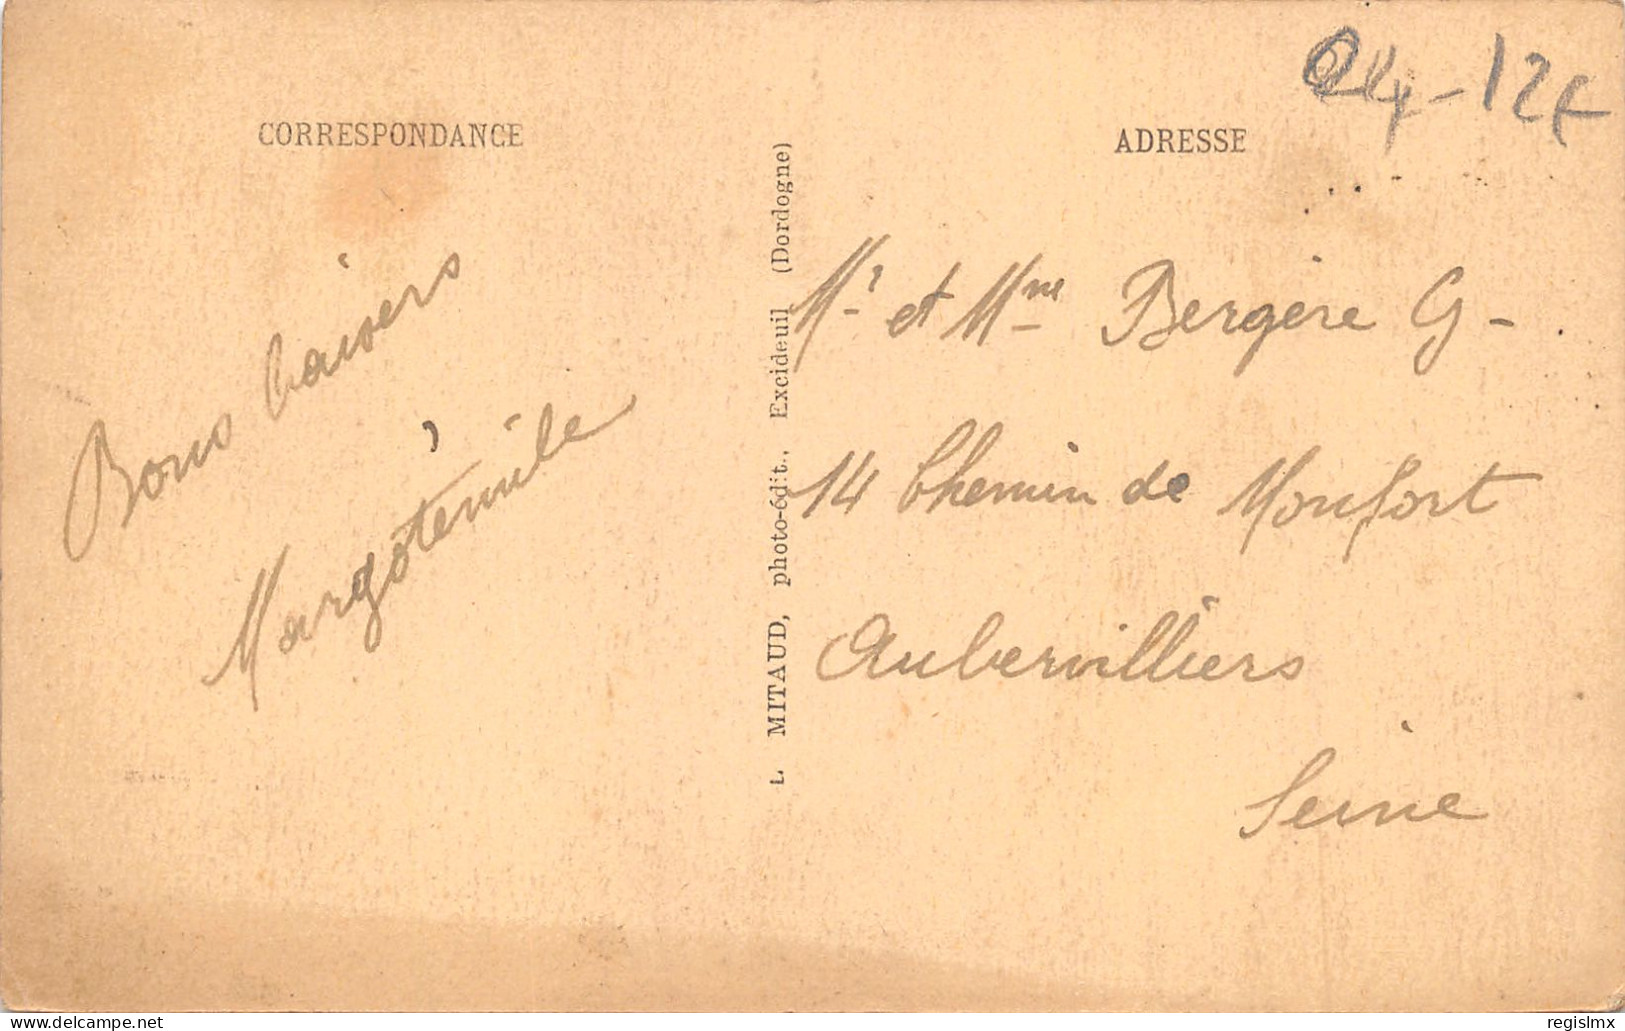 CORRESPONDANCE
Bons baisers
Margotémile
L. MITAUD, photo-édit., Excideuil (Dordogne)
ADRESSE
24-12€
Mr et Mme Bergère G-
14 Chemin de Monfort
Aubervilliers
Seine
www.delcampe.net
regislmx